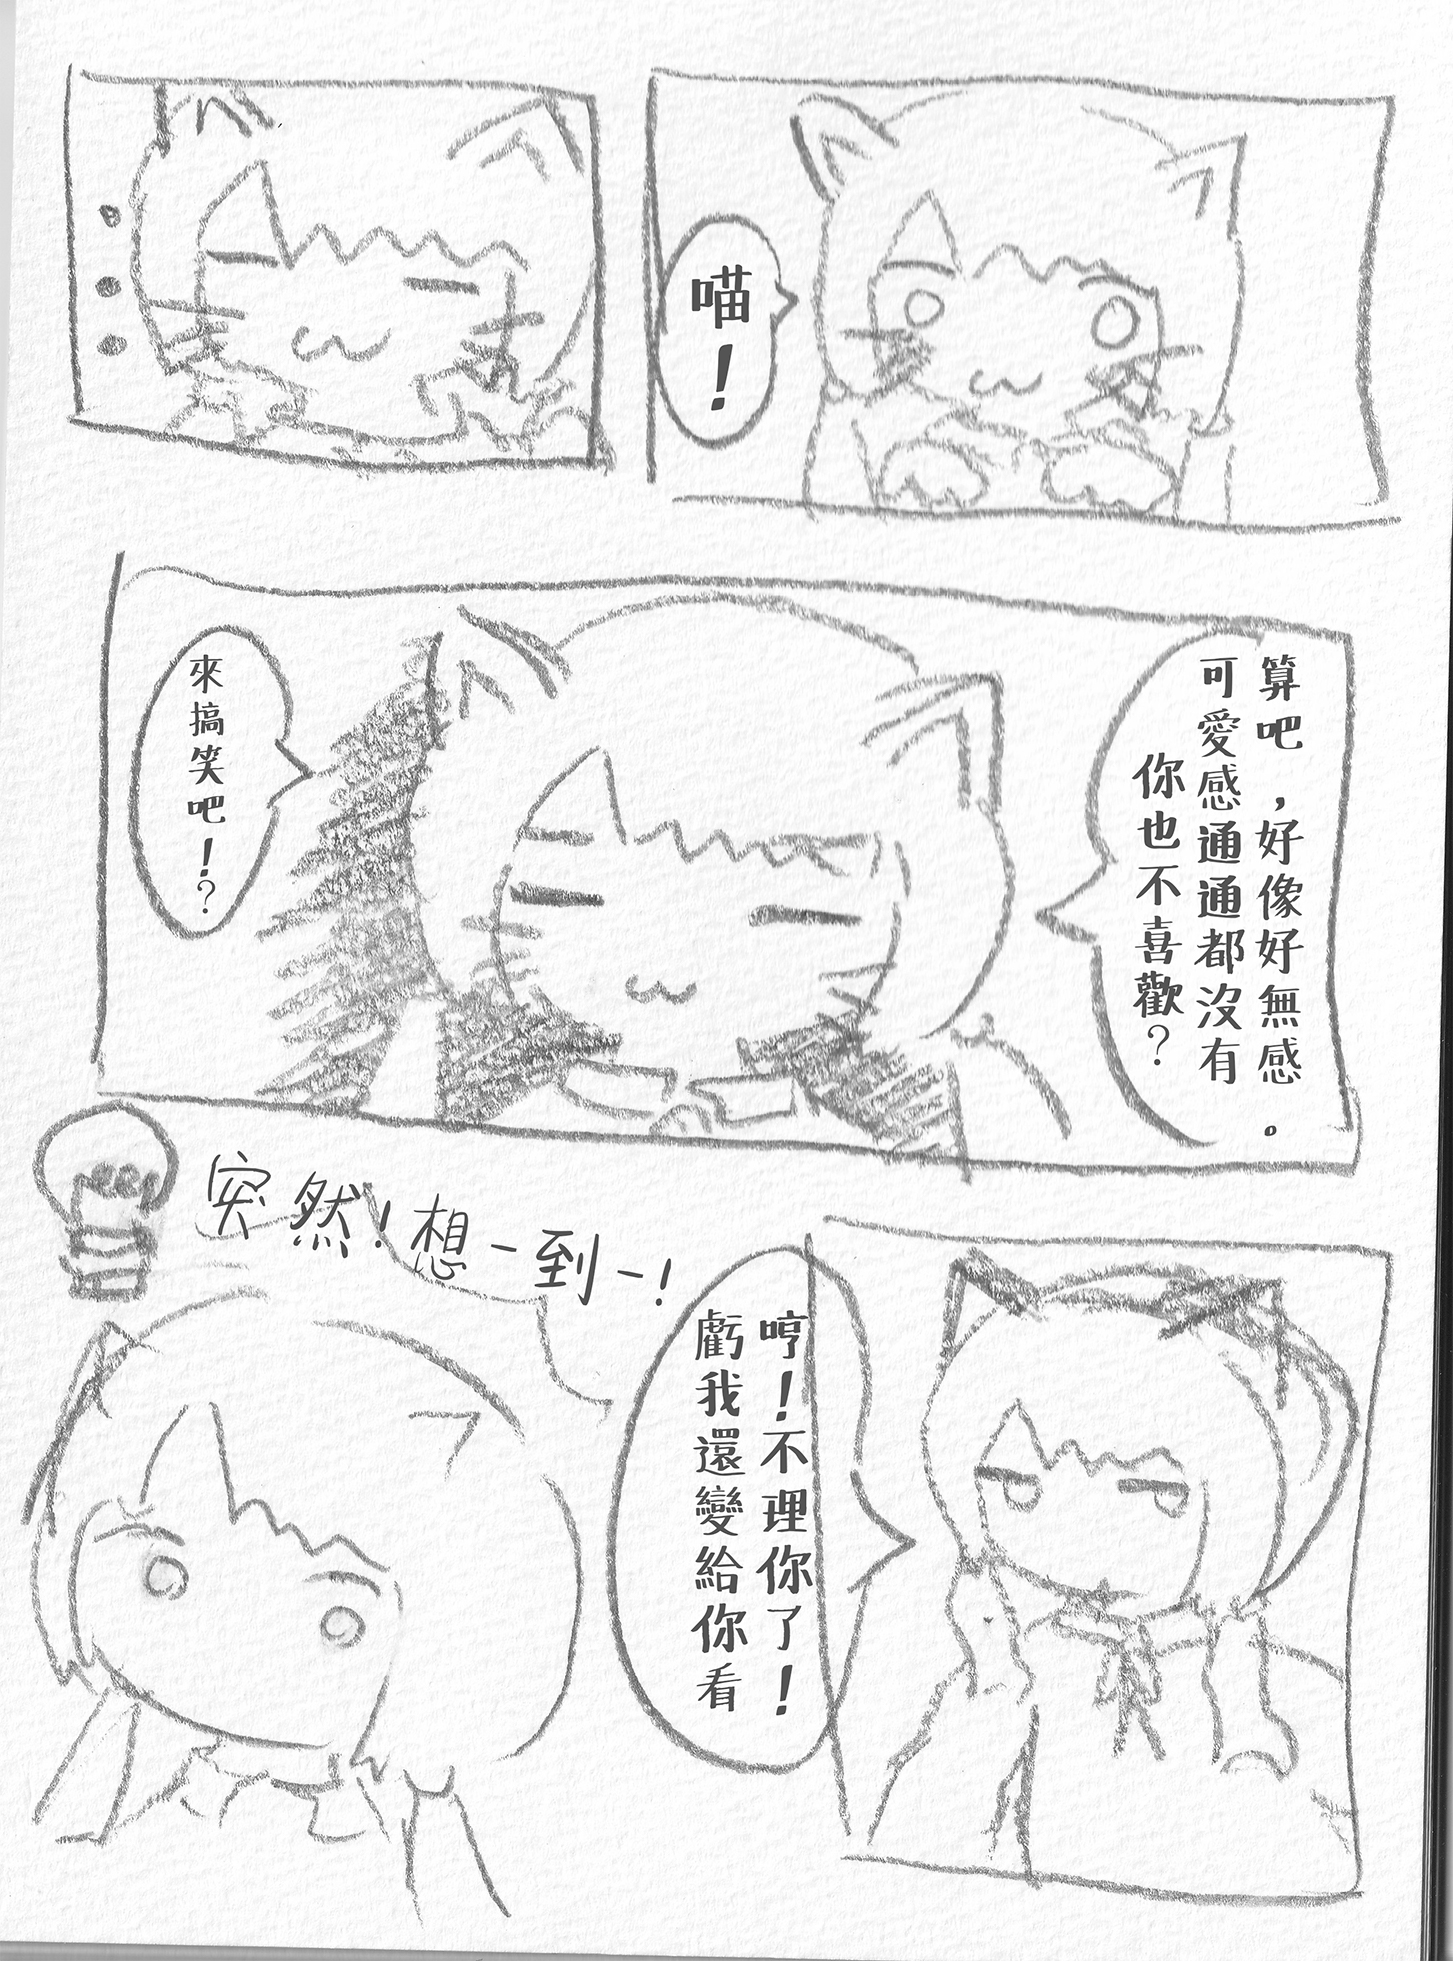 喵！
算吧，好像好無感。
可愛感通通都沒有
你也不喜歡？
來搞笑吧！？
哼！不理你了！
虧我還變給你看
突然！想一到一！